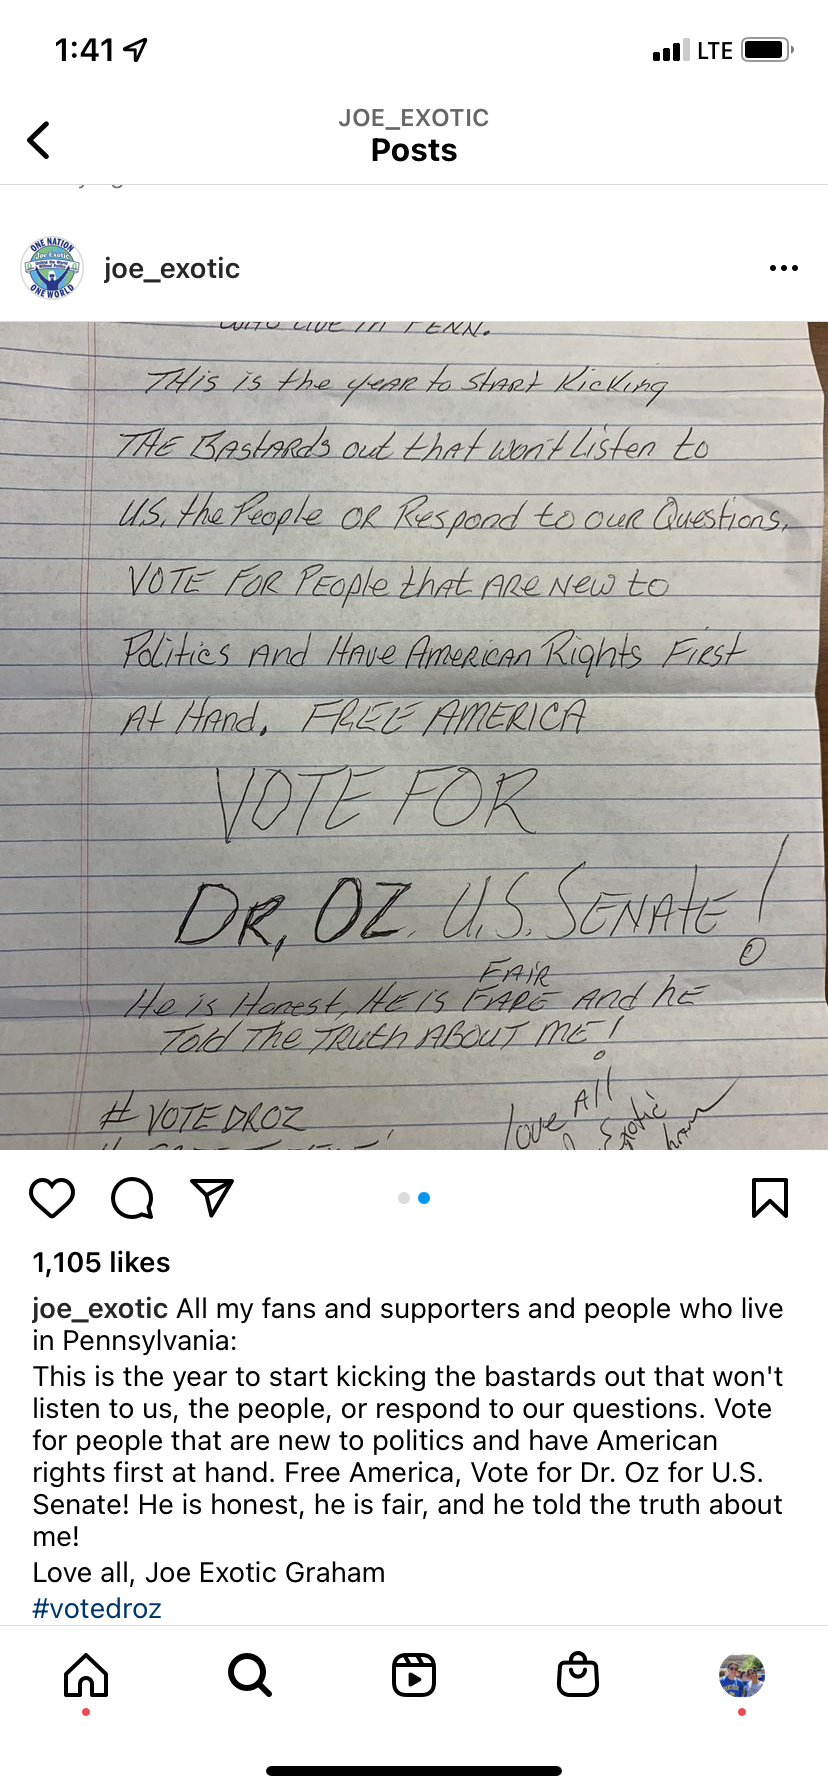 1:41
LTE
JOE_EXOTIC
Posts
ONE NATION
Joe Exotic
ONE WORLD
joe_exotic
WHO LIVE IN PENN.
THis is the yeAR to StARt Kicking
THE BAstARds out thAt won't Listen to
US, the People OR Respond to ouR Questions.
VOTE FOR PEOple thAt ARe New to
Politics And HAve AmeRicAn Rights FiRst
At HAnd. FREE AMERICA
VOTE FOR
DR, OZ. U.S. SENAtE!
FAiR
He is Honest, HE is FARE And hE
Told The TRuth ABOUT ME!
# VOTE DROZ
love All
Exotic
1,105 likes
joe_exotic All my fans and supporters and people who live
in Pennsylvania:
This is the year to start kicking the bastards out that won't
listen to us, the people, or respond to our questions. Vote
for people that are new to politics and have American
rights first at hand. Free America, Vote for Dr. Oz for U.S.
Senate! He is honest, he is fair, and he told the truth about
me!
Love all, Joe Exotic Graham
#votedroz